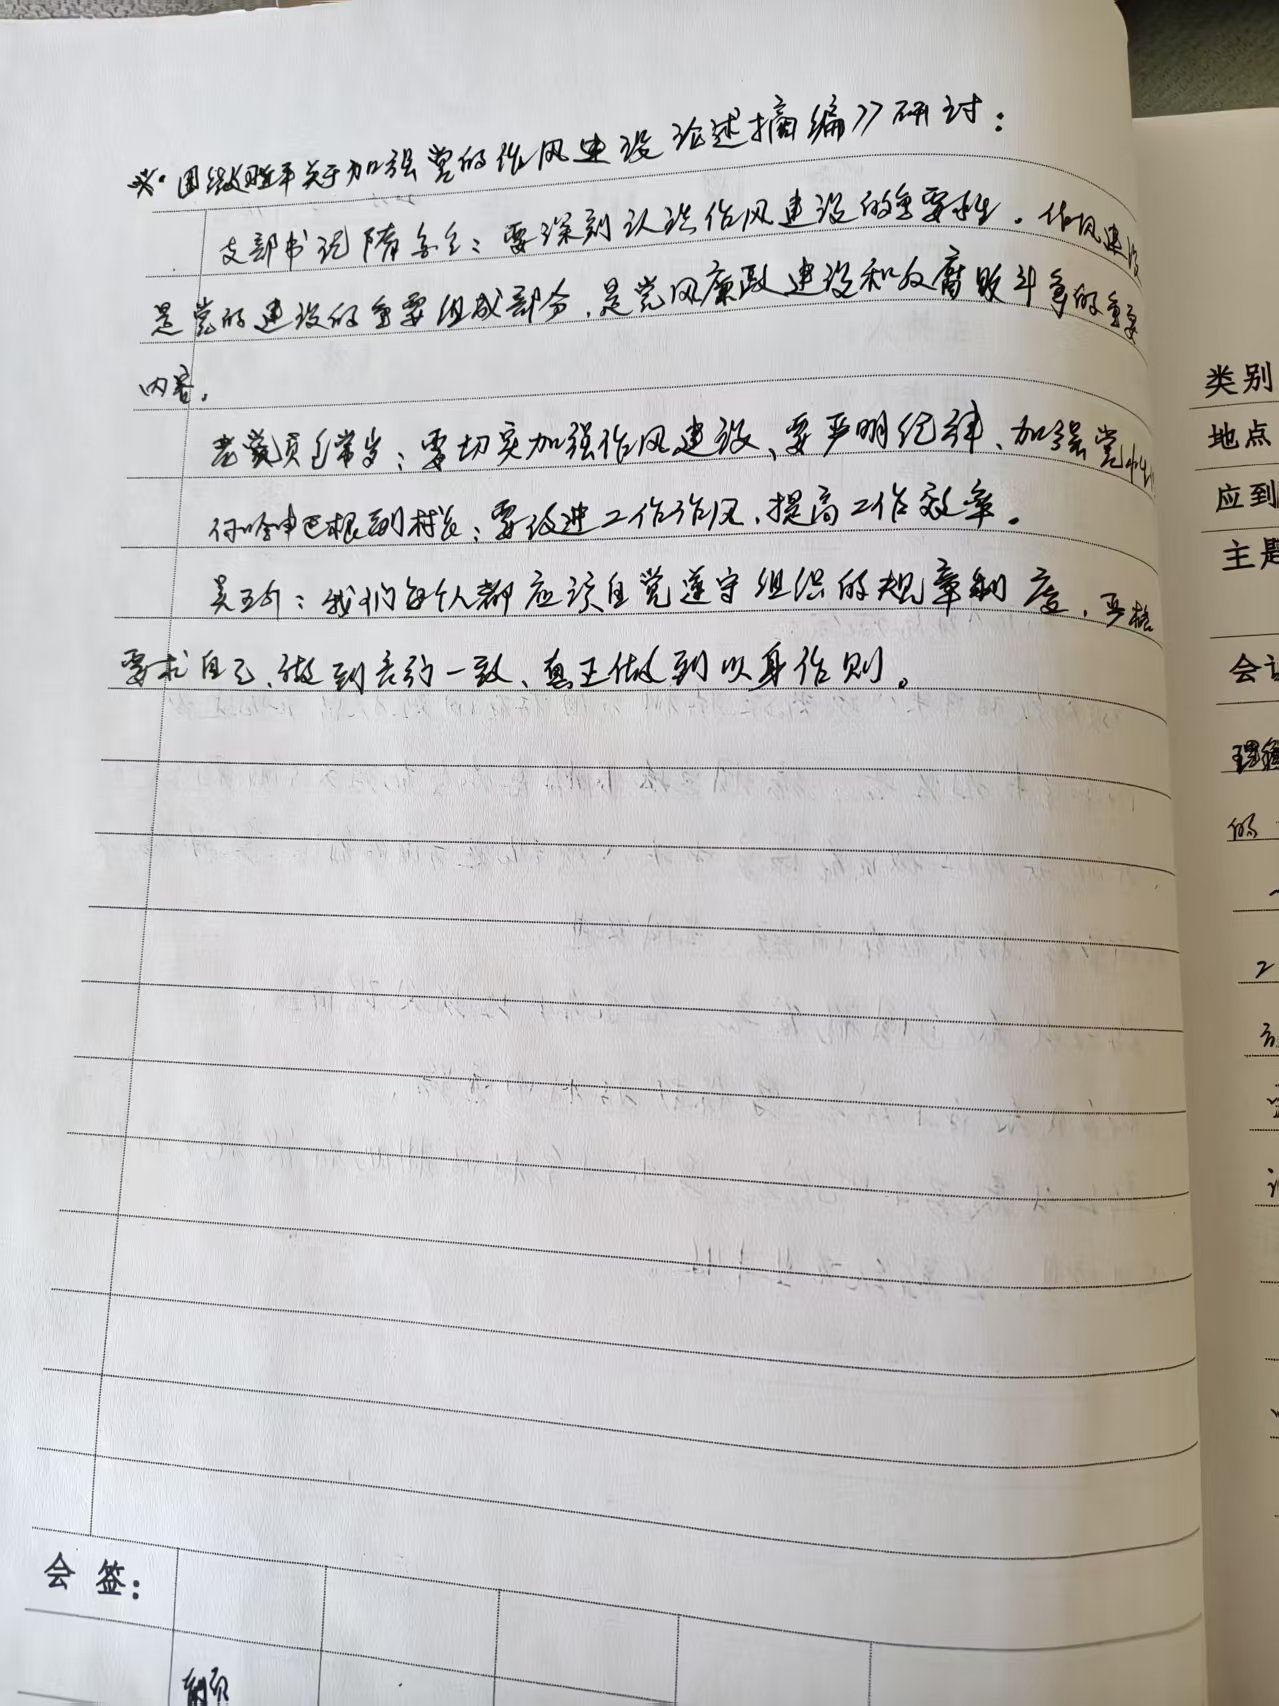 关于加强党的作风建设论述摘编》研讨：
支部书记隋：要深刻认识作风建设的重要性。作风建设
是党的建设的重要组成部分，是党风廉政建设和反腐败斗争的重要
内容。
老党员包常岁：要切实加强作风建设、要严明纪律、加强党
巴根副村长：要改进工作作风，提高工作效率。
吴：我们每个人都应该自觉遵守组织的规章制度，严格
要求自己，做到言行一致、真正做到以身作则。
会签：
类别
地点
应到
主题
会议
的
2